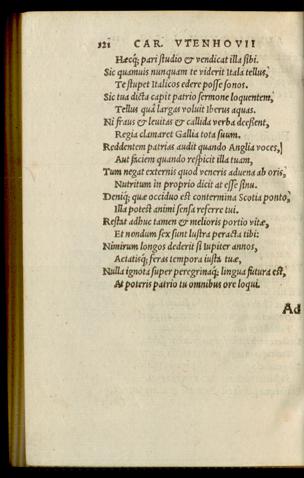 121 CAR. VTENHOVII
Hæcq; pari studio & vendicat illa sibi.
Sic quamuis nunquam te viderit Itala tellus,
Te stupet Italicos edere posse sonos.
Sic tua dicta capit patrio sermone loquentem,
Tellus quà largas voluit Iberus aquas.
Ni fraus & leuitas & callida verba deessent,
Regia clamaret Gallia tota suum.
Reddentem patrias audit quando Anglia voces,
Aut faciem quando respicit illa tuam,
Tum negat externis quod veneris aduena ab oris,
Nutritum in proprio dicit at esse sinu.
Deniq; quæ occiduo est contermina Scotia ponto,
Illa potest animi sensa referre tui.
Restat adhuc tamen & melioris portio vitæ,
Et nondum sex sunt lustra peracta tibi:
Nimirum longos dederit si Iupiter annos,
Aetatisq; feras tempora iusta tuæ,
Nulla ignota super peregrinaq; lingua futura est,
At poteris patrio tu omnibus ore loqui.
Ad